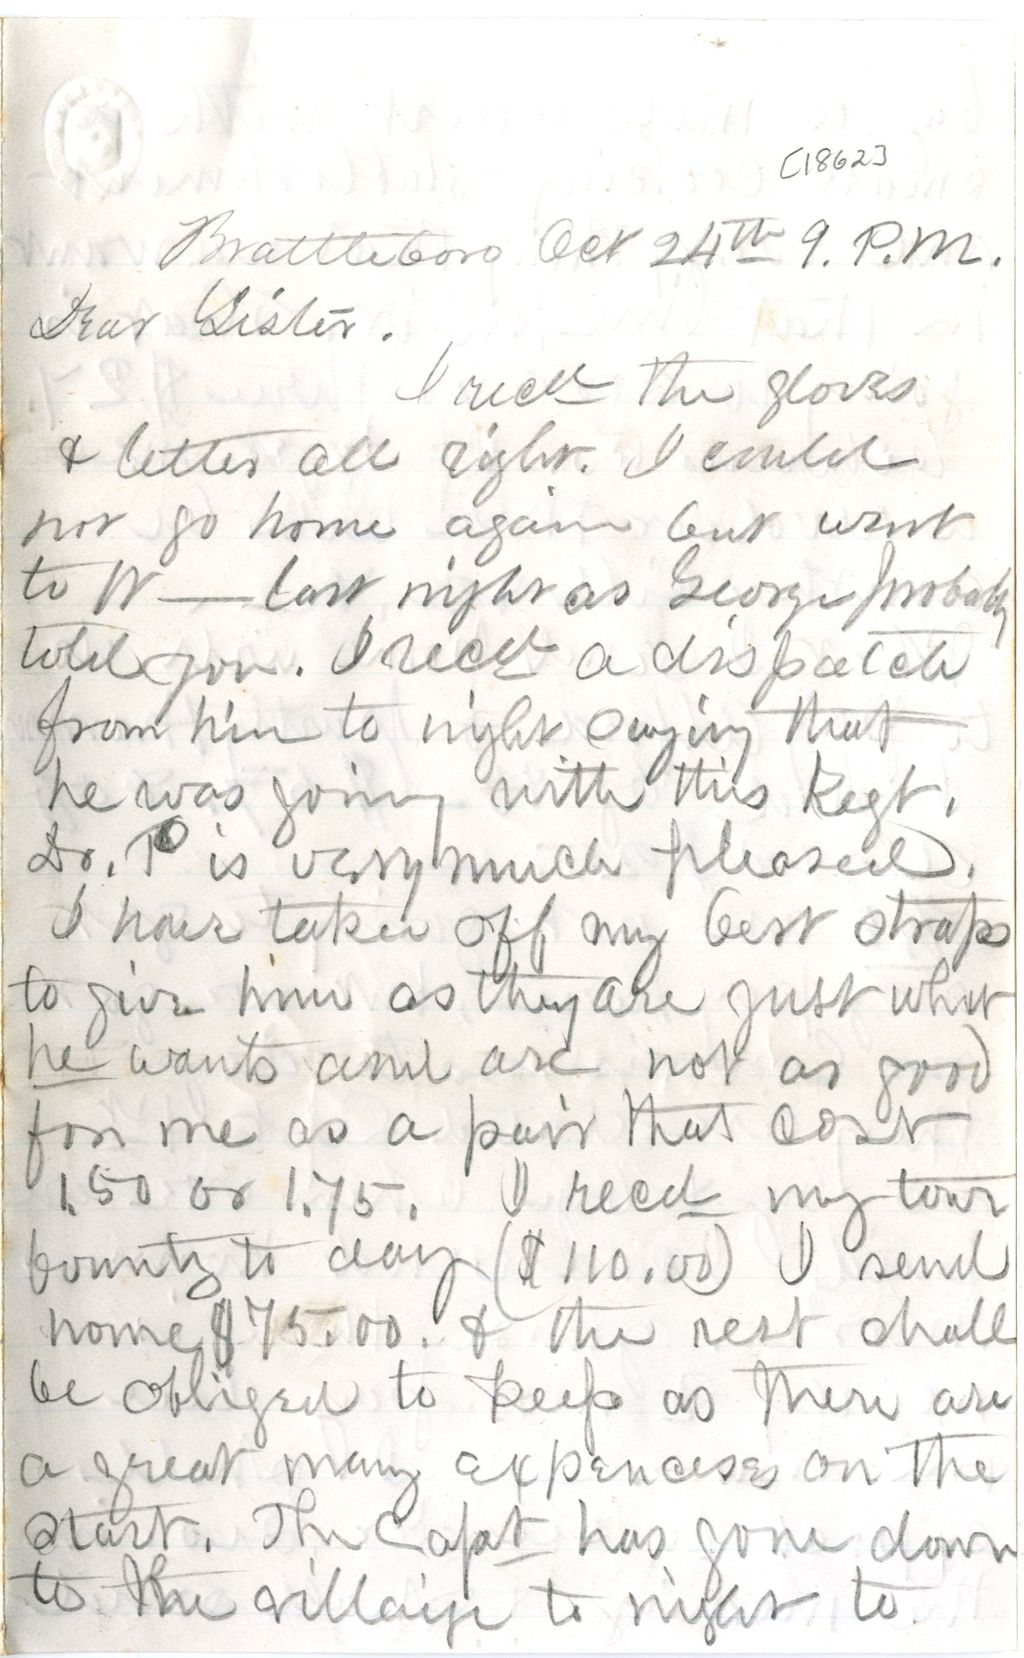 [1862]
Brattleboro Oct 24th 9. P.M.
Dear Sister.
I recd the gloves
& letter all right. I could
not go home again but went
to W— last night as George probably
told you. I recd a dispatch
from him to night saying that
he was going with this Regt.
Dr. P is very much pleased.
I have taken off my best straps
to give him as they are just what
he wants and are not as good
for me as a pair that cost
1.50 or 1.75. I recd my town
bounty to day ($110.00) I send
home $75.00. & the rest shall
be obliged to keep as there are
a great many expences on the
start. The Capt has gone down
to the village to night to